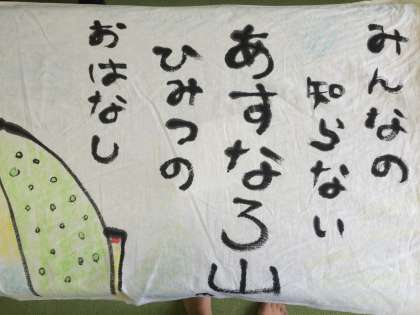 みんなの
知らない
あすなろ山
ひみつの
おはなし